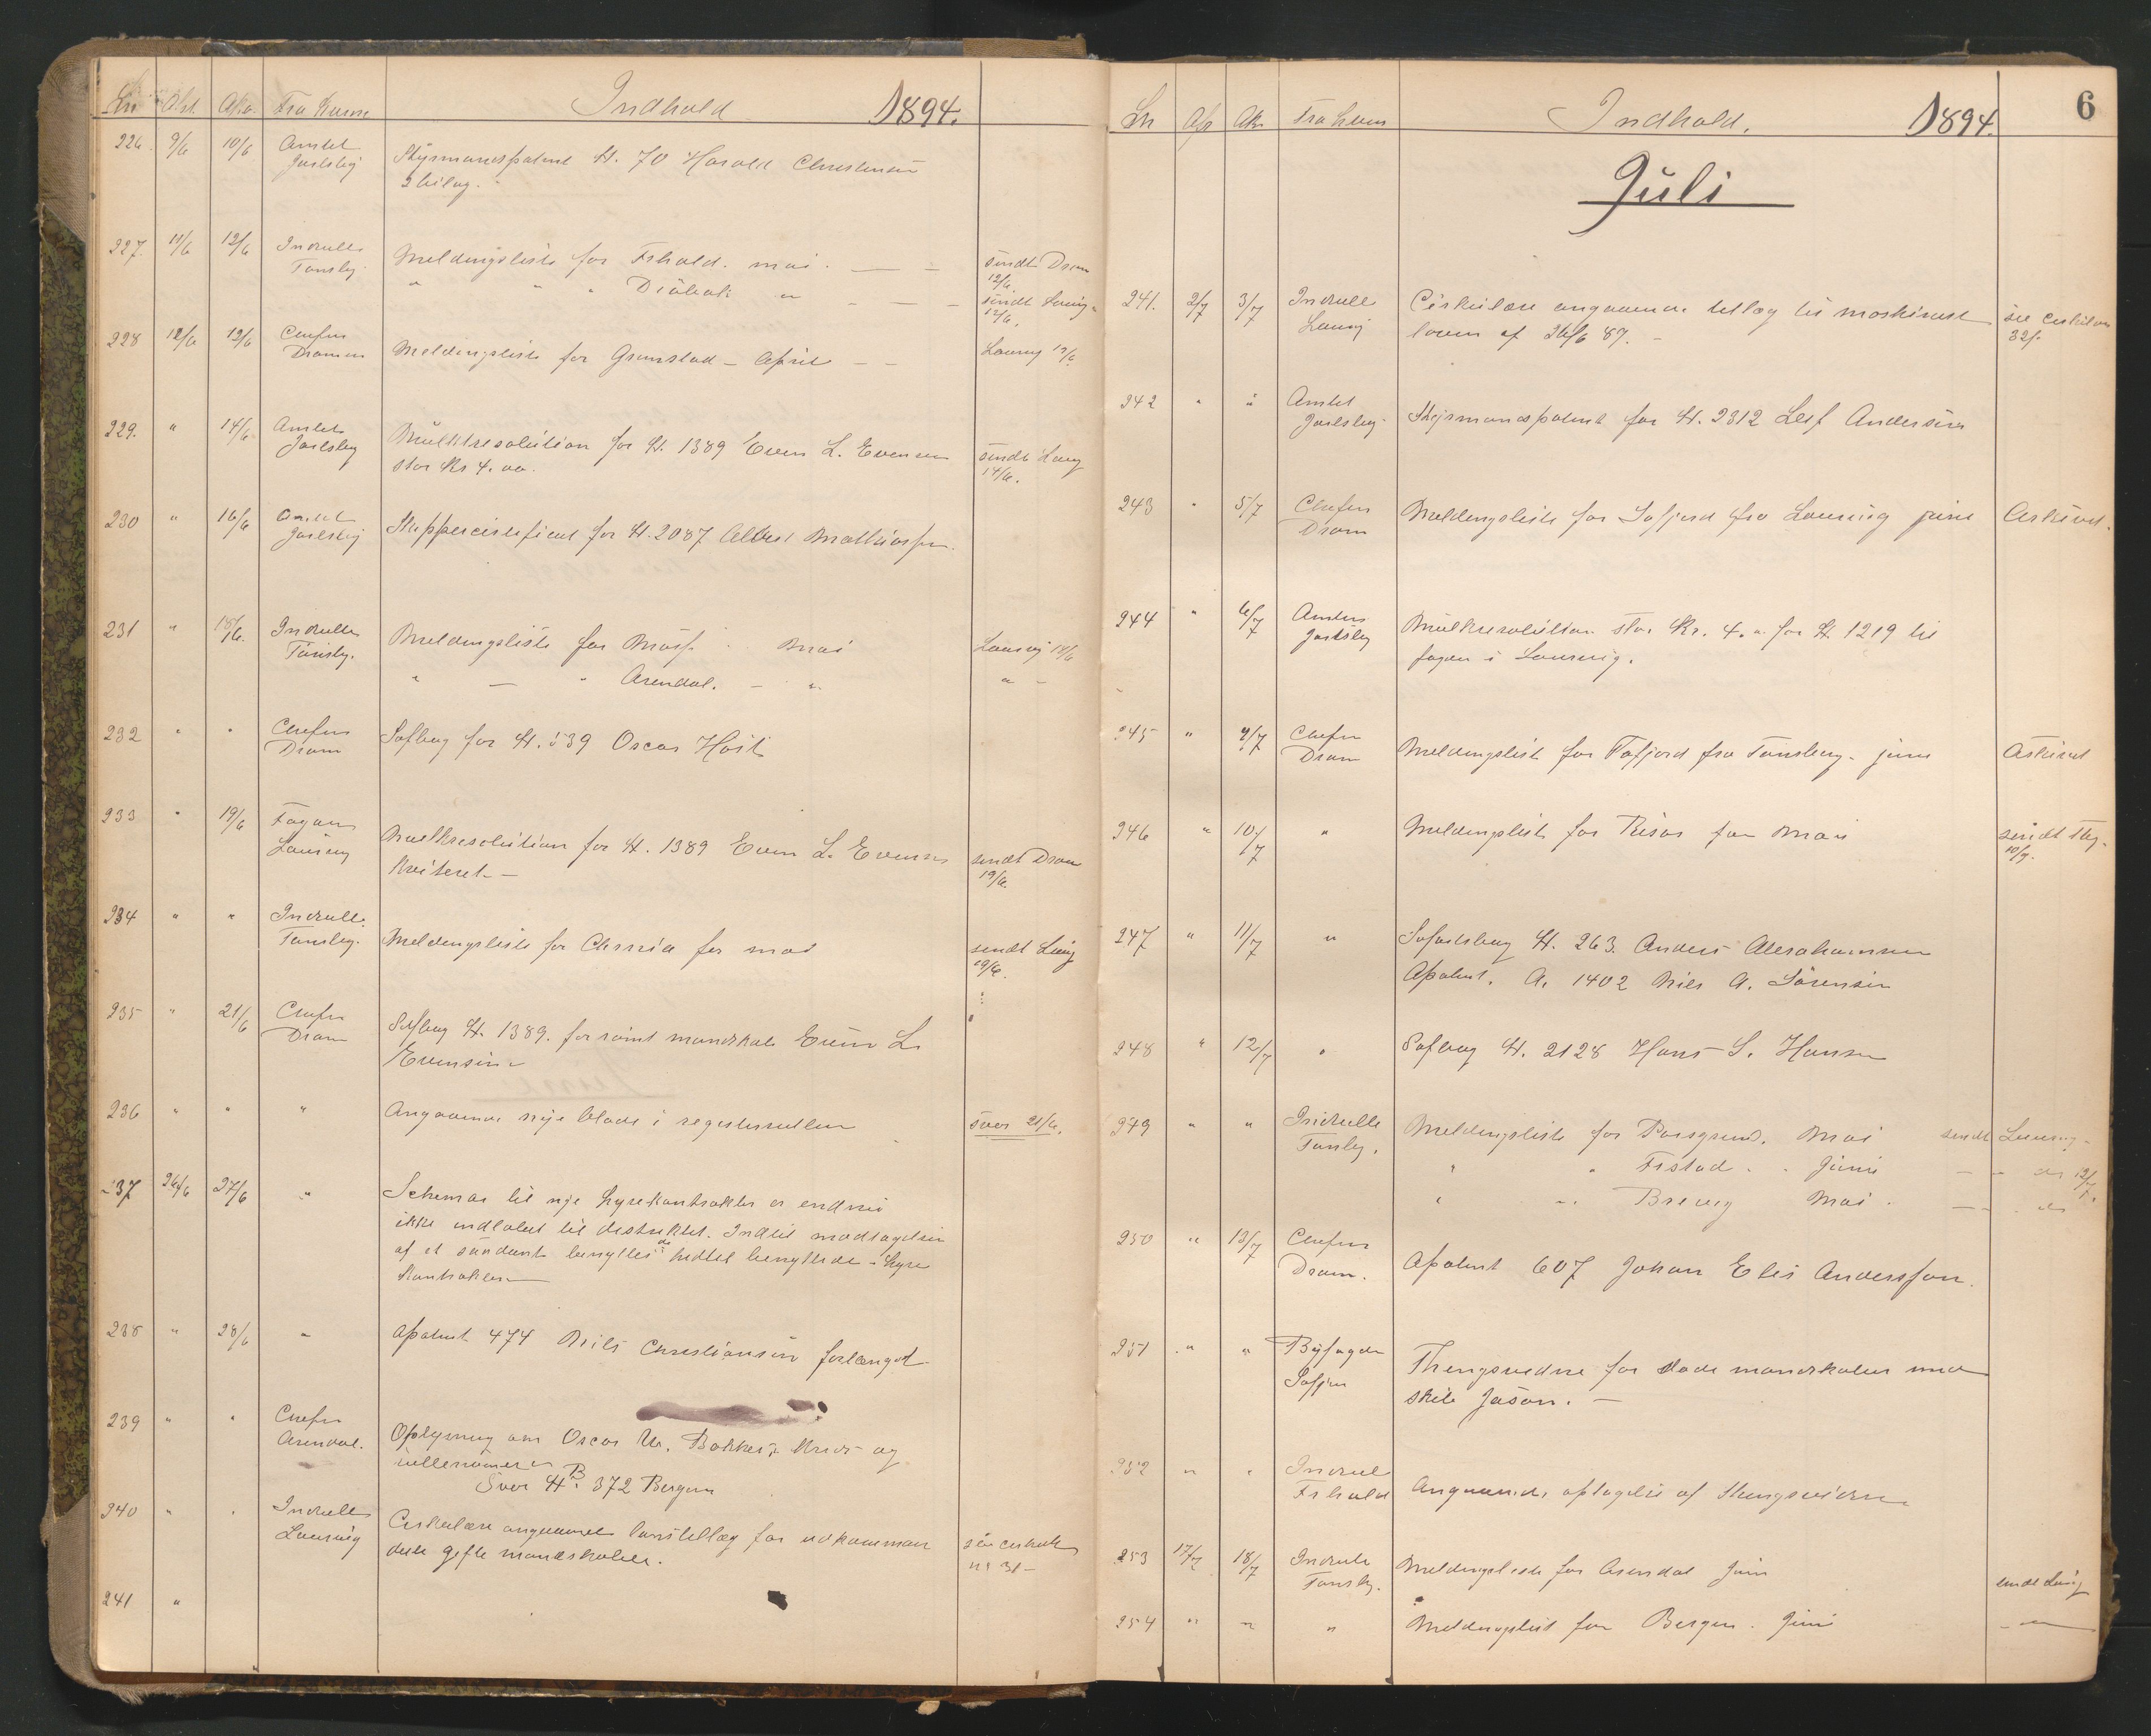 Ln Afst. Afs. Fra Hvem Indhold 1894.
226. 9/6 10/6 Amtet Styrmandspatent H. 70 Harald Christensen
Jarlsbg 2 bilag.
227. 11/6 12/6 Indrulle Meldingsliste for Frhald. mai. — — sendt Dram
Tønsbg. " " " Diübak " — — 12/6.
sendt Laurvig 12/6.
228 12/6 12/6 Chefen Meldingsliste for Grimstad – April – – Laurvig 12/6
Drammen
229. " 14/6 Amtet Mulktresolution for H. 1389 Even L. Evensen sendt Laurvig
Jarlsbg stor Kr 4.00. 14/6.
230 " 16/6 Amtet Skippercertificat for H. 2087 Albert Mathiassen.
Jarlsbg
231 " 18/6. Indrulle Meldingsliste for Moss. Mai Laurvig 18/6
Tønsbg. " — " Arendal. — " " –
232 " " Chefen Søfbog for H. 539 Oscar Høst
Dram
233 " 19/6 Fogden Mulktresolution for H. 1389 Even L. Evensen sendt Dram
Laurvig Kviteret – 19/6.
234 " " Indrulle Meldingsliste for Chrnia for mai sendt Laurvig
Tønsbg. 19/6.
235 " 21/6 Chefen Søfbog H. 1389. for rømt mandskab Even L.
Dram Evensen –
236 " " " Angaaende nye blade i registerrullen svar 21/6.
237 26/6 27/6 " Schemaer til nye hyrekontrakter er endnu
ikke indløbet til distriktet. Indtil modtagelsen
af et saadant benyttes de hidtil benyttede – hyre
kontrakter –
238 " 28/6 " Apatent 474 Nils Christiansen forlænget
239 " " Chefen Oplysning om Oscar M. Bakkes kreds og
Arendal. rullenumer –
Svar H B. 372 Bergen
240 " " Indrulle Cirkulære angaaende lønstillæg for udkomman see cirkulære
Laurvig derte gifte mandskaber. nr 31 –
241 "
Ln Afs Ak Fra hvem Indhold. 1894. 6
Juli
241. 2/7 3/7 Indrulle Cirkulære angaaende tillæg til maskinist see cirkulære
Laurvig loven af 26/6 87. – 32.
242 " " Amtet Styrmandspatent for H. 2312 Leif Andersen
Jarlsbg
243 " 5/7 Chefen Meldingsliste for Sofjord fra Laurvig juni Arkivet.
Dram
244 " 6/7 Amtet Mulktresolution stor Kr. 4. " for H 1219 til
Jarlsbg fogden i Laurvig.
245 " 9/7 Chefen Meldingsliste for Tofjord fra Tønsberg. juni Arkivet
Dram
246 " 10/7 " Meldingsliste for Risør for Mai sendt Tbg. 10/7.
247 " 11/7 " Søfartsbog H. 263. Anders Abrahamsen
Apatent. A. 1402 Nils A. Sørensen
248 " 12/7 " Søfbog H. 2128 Hans S. Hansen
249 " " Indrulle Meldingsliste for Porsgrund. Mai sendt Laurvig –
Tønsbg. " " Frstad. " Juni — " do 12/7.
" " Brevig Mai. — " do
250 " 13/7 Chefen Apatent 607 Johan Elis Andersson.
Dram.
251 " " Byfogden Thingsvidne for døde mandskaber med
skib Jason. –
252 " " Indrul Angaaende optagelse af thingsvidne
Frhald
253 17/7 18/7 Indrulle Meldingsliste for Arendal Juni sendt Laurvig
Tønsbg.
254 " " " Meldingsliste for Bergen. Juni – " –